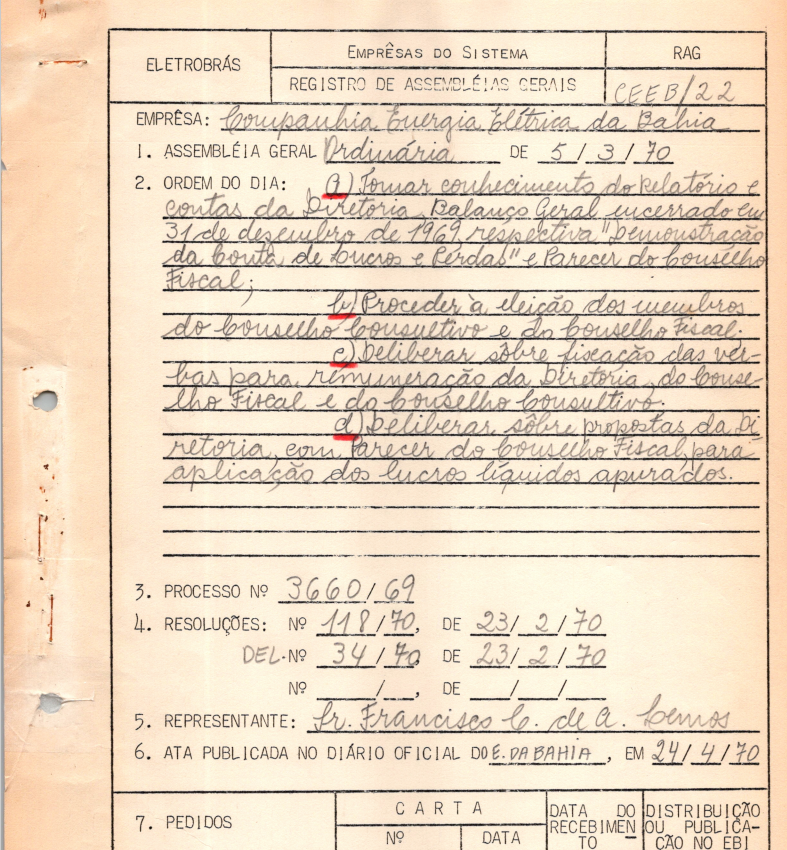 ELETROBRÁS
EMPRÊSAS DO SISTEMA
RAG
REGISTRO DE ASSEMBLÉIAS GERAIS
CEEB/22
EMPRÊSA: Companhia Energia Elétrica da Bahia
1. ASSEMBLÉIA GERAL Ordinária DE 5/3/70
2. ORDEM DO DIA: a) Tomar conhecimento do Relatório e
contas da Diretoria, Balanço Geral encerrado em
31 de dezembro de 1969, respectiva "Demonstração
da Conta de Lucros e Perdas" e Parecer do Conselho
Fiscal;
b) Proceder à eleição dos membros
do Conselho Consultivo e do Conselho Fiscal;
c) Deliberar sôbre fixação das ver-
bas para remuneração da Diretoria, do Conse-
lho Fiscal e do Conselho Consultivo.
d) Deliberar sôbre propostas da Di-
retoria, com Parecer do Conselho Fiscal, para
aplicação dos lucros líquidos apurados.
3. PROCESSO Nº 3660/69
4. RESOLUÇÕES: Nº 118/70, DE 23/2/70
DEL. Nº 34/70, DE 23/2/70
Nº ___/___, DE ___/___/___
5. REPRESENTANTE: Sr. Francisco C. de A. Lemos
6. ATA PUBLICADA NO DIÁRIO OFICIAL DO E. DA BAHIA, EM 24/4/70
7. PEDIDOS
CARTA
Nº
DATA
DATA DO
RECEBIMEN
TO
DISTRIBUIÇÃO
OU PUBLICA-
ÇÃO NO EBI